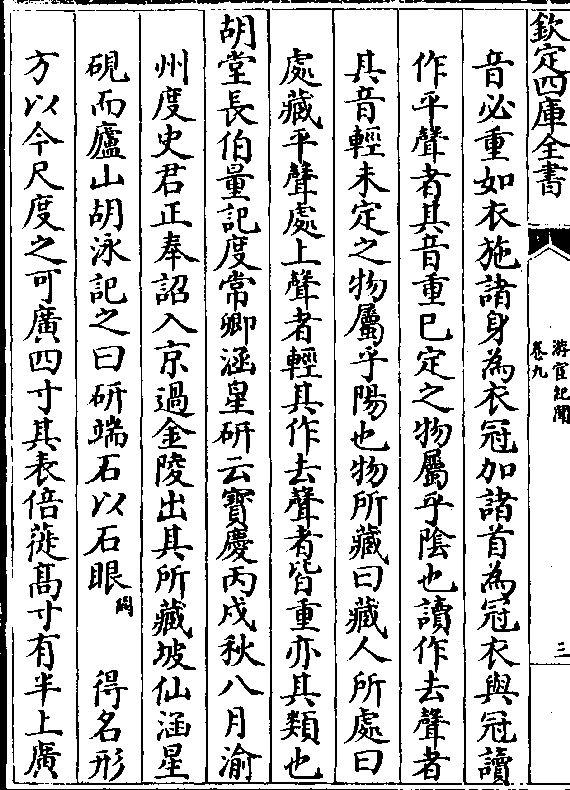 欽定四庫全書
游宦紀聞
卷九
三
音必重如衣施諸身為衣冠加諸首為冠衣與冠讀
作平聲者其音重已定之物屬乎陰也讀作去聲者
其音輕未定之物屬乎陽也物所藏曰藏人所處曰
處藏平聲處上聲者輕其作去聲者皆重亦其類也
胡堂長伯量記度常卿涵星研云寶慶丙戌秋八月渝
州度史君正奉詔入京過金陵出其所藏坡仙涵星
硯而廬山胡泳記之曰研端石以石眼闕得名形
方以今尺度之可廣四寸其表倍蓰髙寸有半上廣